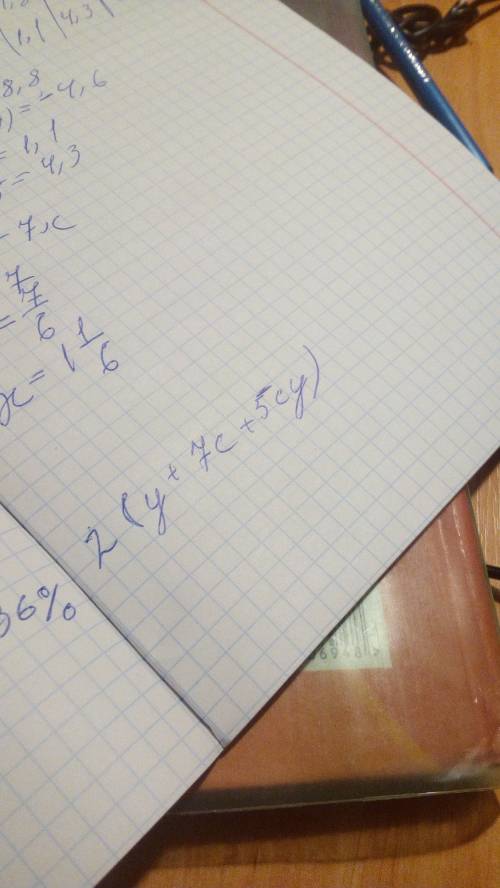 1,1 | 4,3 |
8,8
) = -4,6
= 1,1
= 4,3
- 7x
7
= 7/6
x = 1 1/6
2 (y + 7c + 5cy)
36%